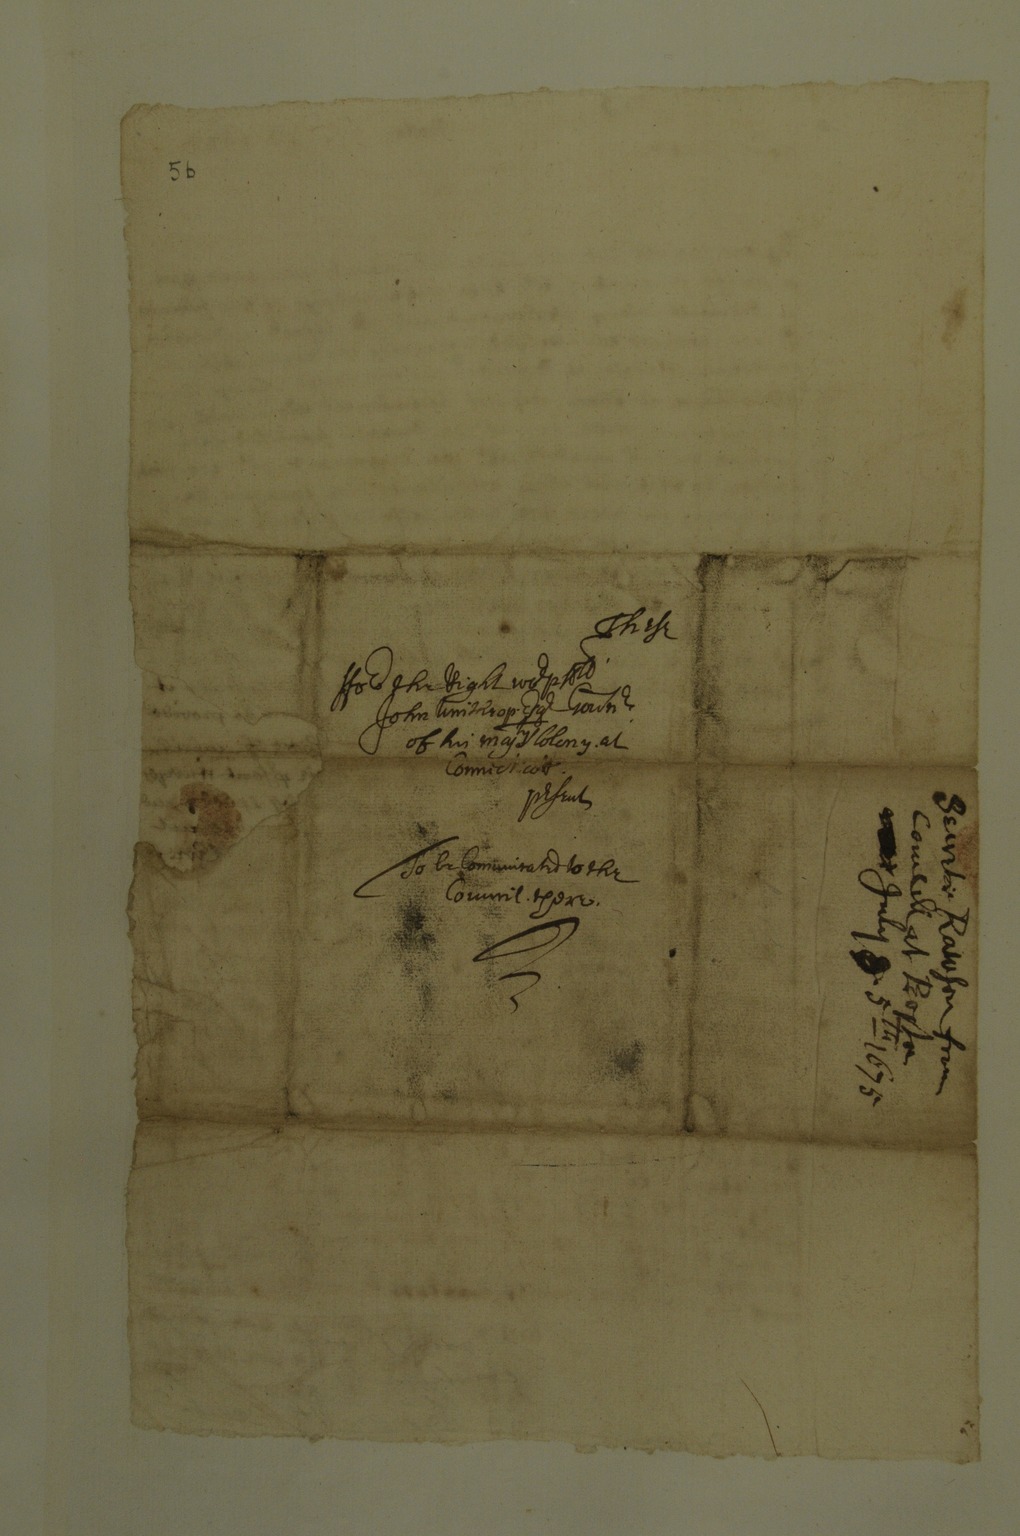 5b
These
ffor the Right worpffll
John Winthrop Esqr Gouernr
of his majtys Colony at
Connecticott
present
To be Communicated to the
Councill there.
Secrtr Rawson from
Councll at Boston
July 5th 1675